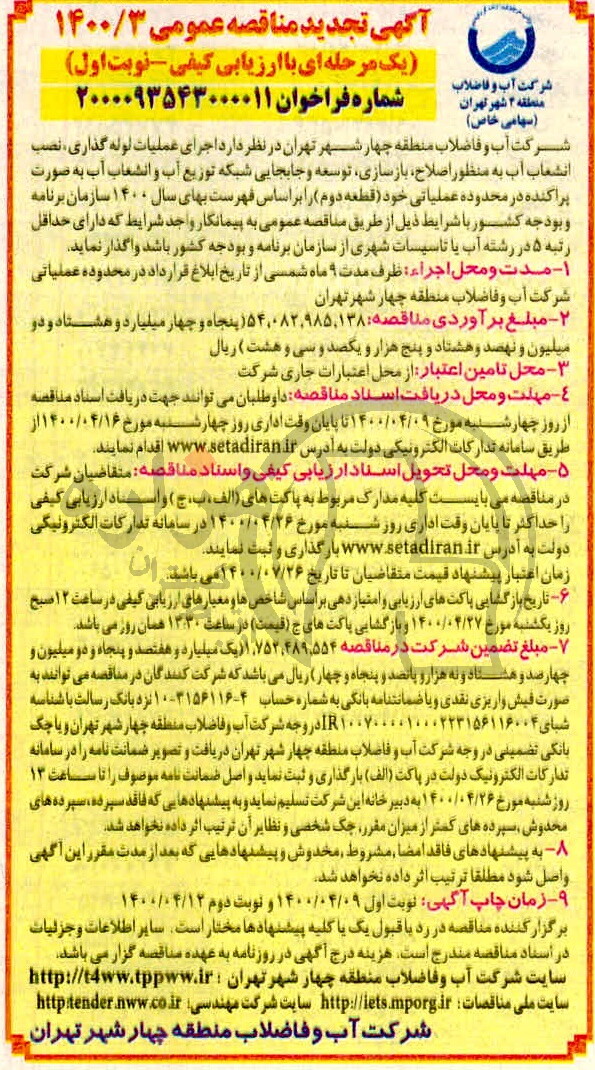 آگهی تجدید مناقصه عمومی ۱۴۰۰/۳
(یک مرحله ای با ارزیابی کیفی - نوبت اول)
شماره فراخوان ۲۰۰۰۰۹۳۵۴۳۰۰۰۰۱۱
شرکت آب و فاضلاب
منطقه ۴ شهر تهران
(سهامی خاص)
شرکت آب و فاضلاب منطقه چهار شهر تهران در نظر دارد اجرای عملیات لوله گذاری، نصب
انشعاب آب به منظور اصلاح، بازسازی، توسعه و جابجایی شبکه توزیع آب و انشعاب آب به صورت
پراکنده در محدوده عملیاتی خود (قطعه دوم) را بر اساس فهرست بهای سال ۱۴۰۰ سازمان برنامه
و بودجه کشور با شرایط ذیل از طریق مناقصه عمومی به پیمانکار واجد شرایط که دارای حداقل
رتبه ۵ در رشته آب یا تاسیسات شهری از سازمان برنامه و بودجه کشور باشد واگذار نماید.
۱- مدت و محل اجراء: ظرف مدت ۹ ماه شمسی از تاریخ ابلاغ قرارداد در محدوده عملیاتی
شرکت آب و فاضلاب منطقه چهار شهر تهران
۲- مبلغ برآوردی مناقصه: ۵۴,۰۸۲,۹۸۵,۱۳۸ (پنجاه و چهار میلیارد و هشتاد و دو
میلیون و نهصد و هشتاد و پنج هزار و یکصد و سی و هشت) ریال
۳- محل تامین اعتبار: از محل اعتبارات جاری شرکت
۴- مهلت و محل دریافت اسناد مناقصه: داوطلبان می توانند جهت دریافت اسناد مناقصه
از روز چهارشنبه مورخ ۱۴۰۰/۰۴/۰۹ تا پایان وقت اداری روز چهارشنبه مورخ ۱۴۰۰/۰۴/۱۶ از
طریق سامانه تدارکات الکترونیکی دولت به آدرس www.setadiran.ir اقدام نمایند.
۵- مهلت و محل تحویل اسناد ارزیابی کیفی و اسناد مناقصه: متقاضیان شرکت
در مناقصه می بایست کلیه مدارک مربوط به پاکت های (الف، ب، ج) و اسناد ارزیابی کیفی
را حداکثر تا پایان وقت اداری روز شنبه مورخ ۱۴۰۰/۰۴/۲۶ در سامانه تدارکات الکترونیکی
دولت به آدرس www.setadiran.ir بارگذاری و ثبت نمایند.
زمان اعتبار پیشنهاد قیمت متقاضیان تا تاریخ ۱۴۰۰/۰۷/۲۶ می باشد.
۶- تاریخ بازگشایی پاکت های ارزیابی و امتیازدهی بر اساس شاخص ها و معیارهای ارزیابی کیفی در ساعت ۱۲ صبح
روز یکشنبه مورخ ۱۴۰۰/۰۴/۲۷ و بازگشایی پاکت های ج (قیمت) در ساعت ۱۳:۳۰ همان روز می باشد.
۷- مبلغ تضمین شرکت در مناقصه ۱,۷۵۲,۴۸۹,۵۵۴ (یک میلیارد و هفتصد و پنجاه و دو میلیون و
چهارصد و هشتاد و نه هزار و پانصد و پنجاه و چهار) ریال می باشد که شرکت کنندگان در مناقصه می توانند به
صورت فیش واریزی نقدی و یا ضمانتنامه بانکی به شماره حساب ۴-۳۱۵۶۱۱۶-۱۰ نزد بانک رسالت با شناسه
شبای IR۱۰۰۷۰۰۰۰۱۰۰۰۲۲۳۱۵۶۱۱۶۰۰۴ در وجه شرکت آب و فاضلاب منطقه چهار شهر تهران و یا چک
بانکی تضمینی در وجه شرکت آب و فاضلاب منطقه چهار شهر تهران دریافت و تصویر ضمانت نامه را در سامانه
تدارکات الکترونیک دولت در پاکت (الف) بارگذاری و ثبت نماید و اصل ضمانت نامه موصوف را تا ساعت ۱۳
روز شنبه مورخ ۱۴۰۰/۰۴/۲۶ به دبیرخانه این شرکت تسلیم نماید و به پیشنهادهایی که فاقد سپرده، سپرده های
مخدوش، سپرده های کمتر از میزان مقرر، چک شخصی و نظایر آن ترتیب اثر داده نخواهد شد.
۸- به پیشنهادهای فاقد امضا، مشروط، مخدوش و پیشنهادهایی که بعد از مدت مقرر این آگهی
واصل شود مطلقا ترتیب اثر داده نخواهد شد.
۹- زمان چاپ آگهی: نوبت اول ۱۴۰۰/۰۴/۰۹ و نوبت دوم ۱۴۰۰/۰۴/۱۲
برگزار کننده مناقصه در رد یا قبول یک یا کلیه پیشنهادها مختار است. سایر اطلاعات و جزئیات
در اسناد مناقصه مندرج است. هزینه درج آگهی در روزنامه به عهده مناقصه گزار می باشد.
سایت شرکت آب و فاضلاب منطقه چهار شهر تهران : http://t4ww.tppww.ir
سایت ملی مناقصات: http://iets.mporg.ir سایت شرکت مهندسی: http:tender.nww.co.ir
شرکت آب و فاضلاب منطقه چهار شهر تهران